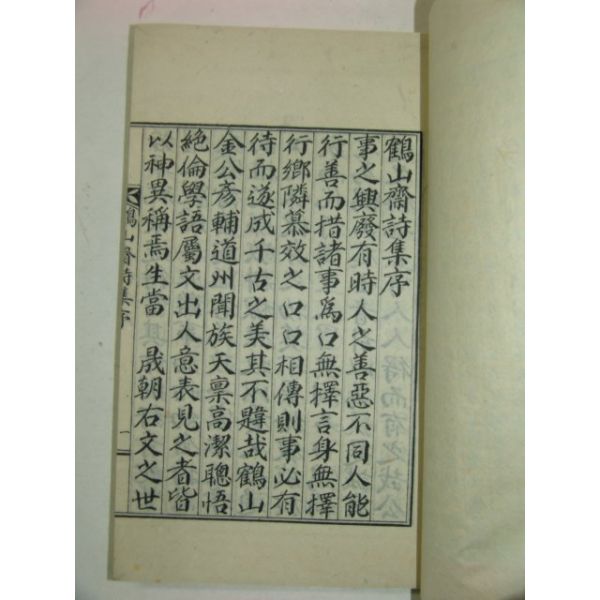 鶴山齋詩集序
事之興廢有時人之善惡不同人能
行善而措諸事爲口無擇言身無擇
行鄉隣慕效之口口相傳則事必有
待而遂成千古之美其不韙哉鶴山
金公彥輔道州聞族天稟高潔聰悟
絶倫學語屬文出人意表見之者皆
以神異稱焉生當 晟朝右文之世
鶴山齋詩集序
一